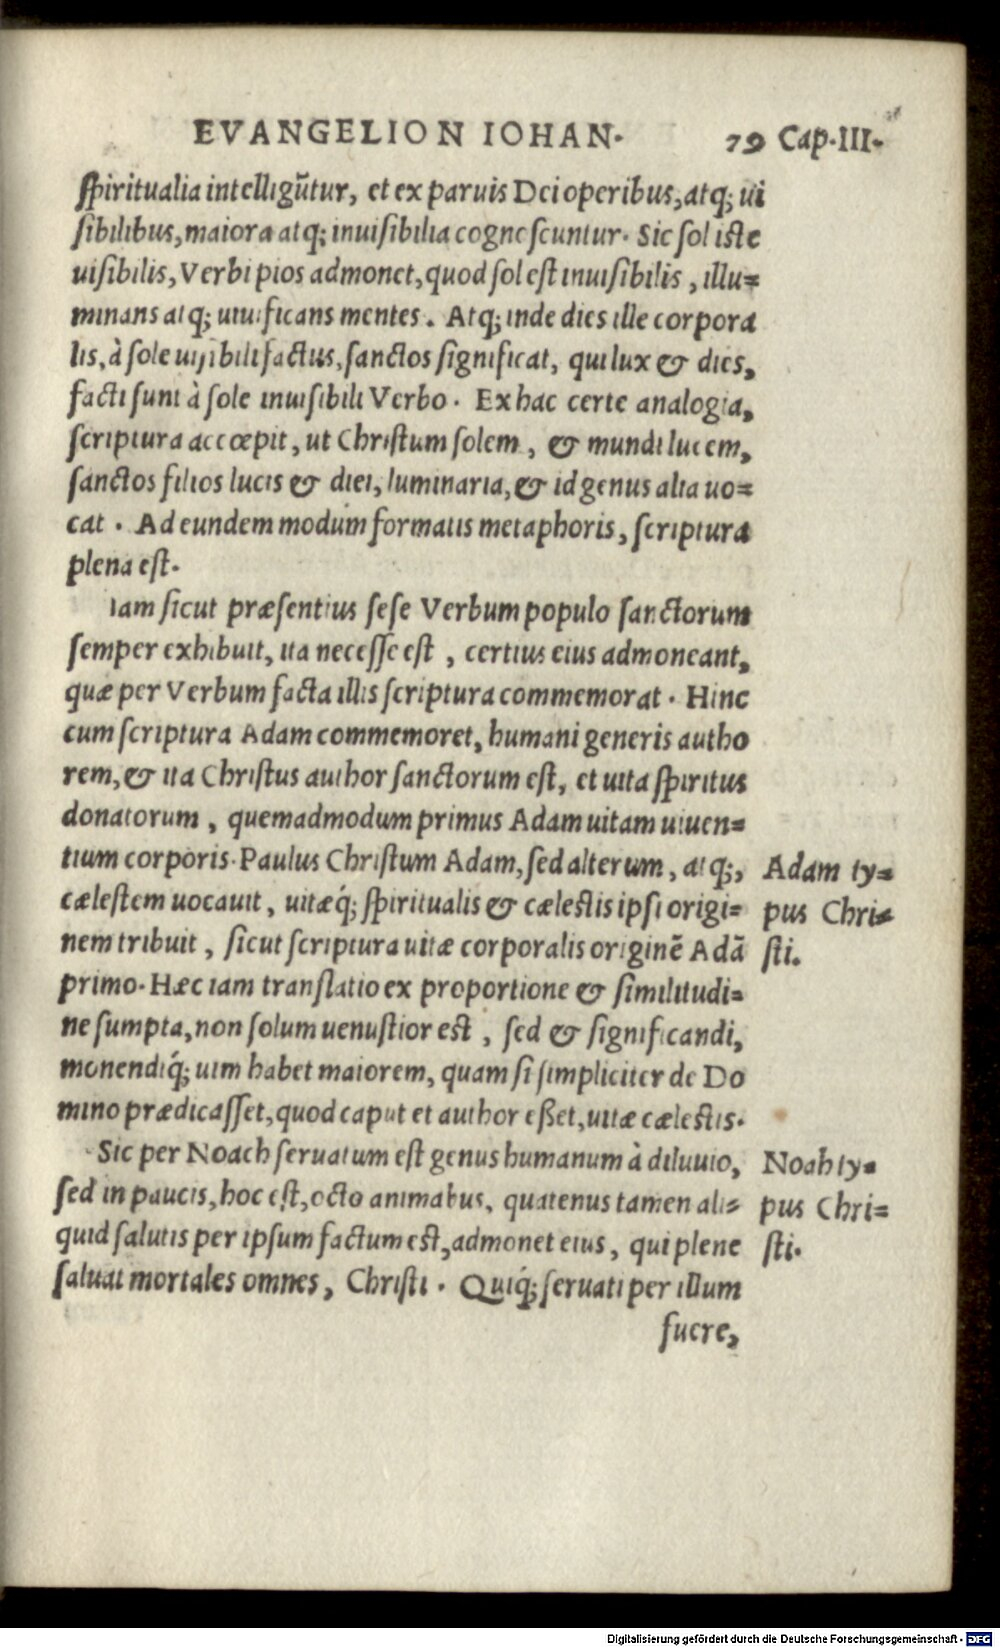 EVANGELION IOHAN. 79 Cap.III.
spiritualia intelligūtur, et ex paruis Dei operibus, atq; ui
sibilibus, maiora atq; inuisibilia cognoscuntur. Sic sol iste
uisibilis, Verbi pios admonet, quod sol est inuisibilis, illu=
minans atq; uiuificans mentes. Atq; inde dies ille corpora
lis, à sole uisibili factus, sanctos significat, qui lux & dies,
facti sunt à sole inuisibili Verbo. Ex hac certe analogia,
scriptura accœpit, ut Christum solem, & mundi lucem,
sanctos filios lucis & diei, luminaria, & id genus alia uo=
cat. Ad eundem modum formatis metaphoris, scriptura
plena est.
Iam sicut præsentius sese Verbum populo sanctorum
semper exhibuit, ita necesse est, certius eius admoneant,
quæ per Verbum facta illis scriptura commemorat. Hinc
cum scriptura Adam commemoret, humani generis autho
rem, & ita Christus author sanctorum est, et uita spiritus
donatorum, quemadmodum primus Adam uitam uiuen=
tium corporis. Paulus Christum Adam, sed alterum, atq;,
cælestem uocauit, uitæq́; spiritualis & cælestis ipsi origi=
nem tribuit, sicut scriptura uitæ corporalis originē Adā
primo. Hæc iam translatio ex proportione & similitudi=
ne sumpta, non solum uenustior est, sed & significandi,
monendiq́; uim habet maiorem, quam si simpliciter de Do
mino prædicasset, quod caput et author eßet, uitæ cælestis.
Adam ty=
pus Chri=
sti.
Sic per Noach seruatum est genus humanum à diluuio,
sed in paucis, hoc est, octo animabus, quatenus tamen ali=
quid salutis per ipsum factum est, admonet eius, qui plene
saluat mortales omnes, Christi. Quiq́; seruati per illum
Noah ty=
pus Chri=
sti.
fuere,
Digitalisierung gefördert durch die Deutsche Forschungsgemeinschaft - DFG